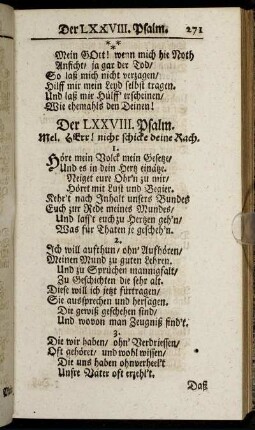 Der LXXVIII. Psalm. 271
***
Mein GOtt! wenn mich die Noth
Anficht/ ja gar der Tod/
So laß mich nicht verzagen/
Hilff mir mein Leyd selbst tragen.
Und laß mir Hülff' erscheinen/
Wie ehemahls den Deinen!
Der LXXVIII. Psalm.
Mel. HErr! nicht schicke deine Rach.
1.
Höre mein Volck mein Gesetze/
Und es in dein Hertz einätze.
Neiget eure Ohr'n zu mir/
Höret mit Lust und Begier.
Kehr't nach Inhalt unsers Bundes
Euch zur Rede meines Mundes/
Und lass't euch zu Hertzen geh'n/
Was für Thaten je gescheh'n.
2.
Ich will aufthun/ ohn' Aufhören/
Meinen Mund zu guten Lehren.
Und zu Sprüchen mannigfalt/
Zu Geschichten die sehr alt.
Diese will ich jetzt fürtragen/
Sie aussprechen und hersagen.
Die gewiß geschehen sind/
Und wovon man Zeugniß find't.
3.
Die wir haben/ ohn' Verdriessen/
Oft gehöret/ und wohl wissen/
Die uns haben ohnverheel't
Unsre Vater oft erzehl't.
Daß